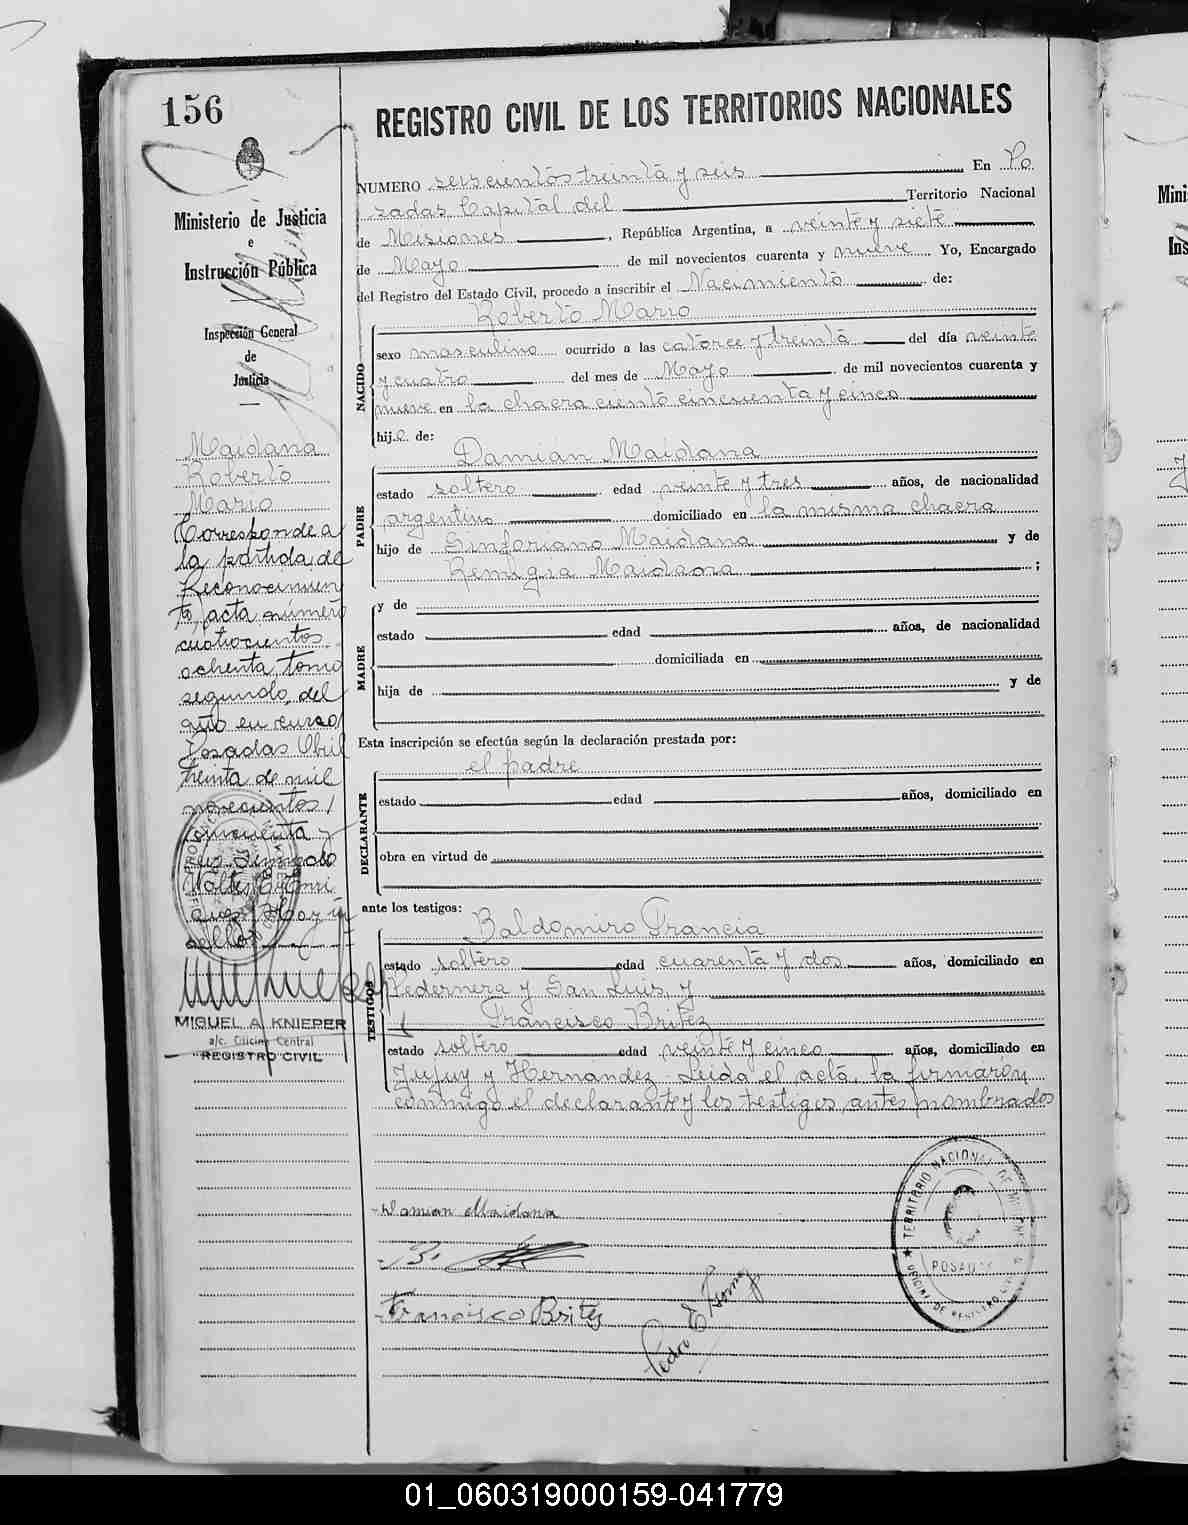 156
REGISTRO CIVIL DE LOS TERRITORIOS NACIONALES
Ministerio de Justicia
e
Instrucción Pública
Inspección General
de
Justicia
Maidana
Roberto
Mario
Corresponde a
la partida de
Reconocimien
to, acta número
cuatrocientos
ochenta, tomo
segundo, del
año en curso
Posadas Abril
treinta de mil
novecientos
cincuenta y
MIGUEL A. KNIEPER
a/c. Oficina Central
REGISTRO CIVIL
NUMERO seiscientos treinta y seis En Po
sadas Capital del Territorio Nacional
de Misiones, República Argentina, a veinte y siete
de Mayo de mil novecientos cuarenta y nueve Yo, Encargado
del Registro del Estado Civil, procedo a inscribir el Nacimiento de:
NACIDO
Roberto Mario
sexo masculino ocurrido a las catorce y treinta del día veinte
y cuatro del mes de Mayo de mil novecientos cuarenta y
nueve en la chacra ciento cincuenta y cinco
hijo de:
PADRE
Damián Maidana
estado soltero edad veinte y tres años, de nacionalidad
argentino domiciliado en la misma chacra
hijo de Sinforiano Maidana y de
Remigia Maidana;
MADRE
y de
estado edad años, de nacionalidad
domiciliada en
hija de y de
Esta inscripción se efectúa según la declaración prestada por:
DECLARANTE
el padre
estado edad años, domiciliado en
obra en virtud de
ante los testigos:
TESTIGOS
Baldomiro Francia
estado soltero edad cuarenta y dos años, domiciliado en
Pedernera y San Luis, y
Francisco Britez
estado soltero edad veinte y cinco años, domiciliado en
Jujuy y Hernandez. Leída el acta, la firmarón
conmigo el declarante y los testigos, antes nombrados
Damian Maidana
B.
Francisco Britez
Pedro E
TERRITORIO NACIONAL DE MISIONES
POSADAS
OFICINA DE REGISTRO CIVIL
01_060319000159-041779